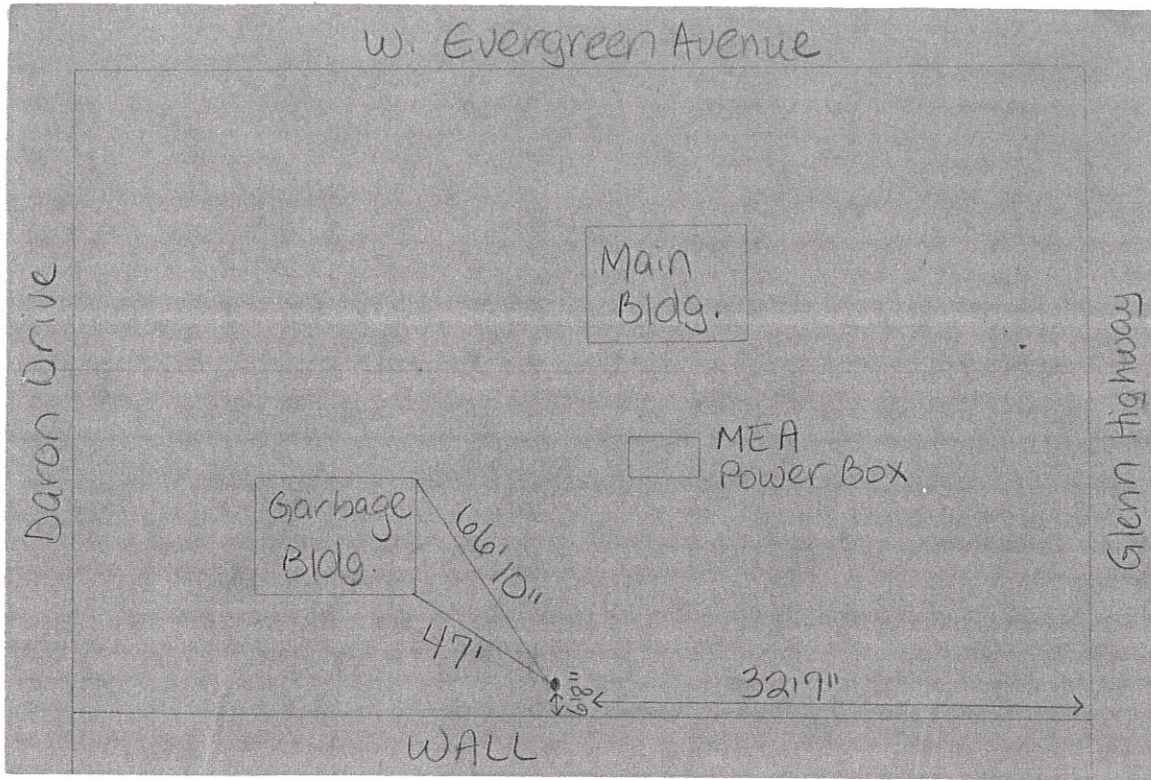 W. Evergreen Avenue
Daron Drive
Main
Bldg.
Glenn Highway
MEA
Power Box
Garbage
Bldg.
66'10"
47'
32'7"
WALL